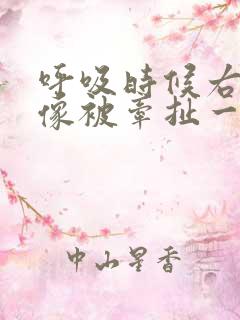 呼吸时候右
像被牵扯一
中山星香